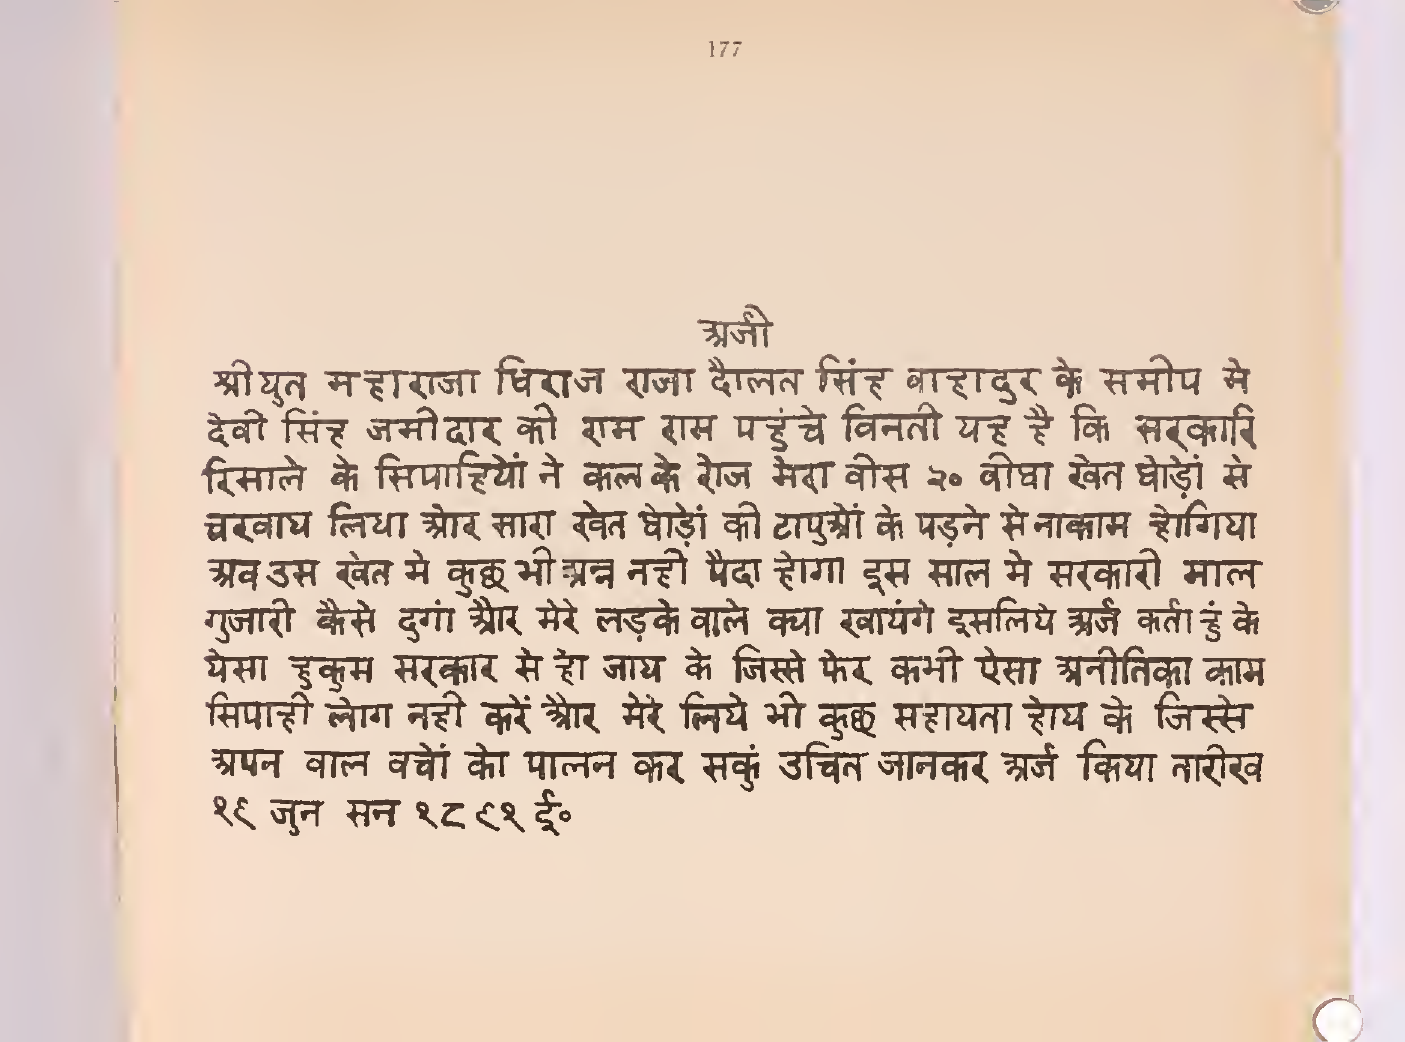 177
अर्जी
श्रीयुत महाराजा धिराज राजा दौलत सिंह वाहादुर के समीप मे
देवी सिंह जमीदार की राम राम पहुंचे विनती यह है कि सरकारि
रिसाले के सिपाहियों ने कल के रोज मेरा वीस २० वीघा खेत घोड़ों से
चरवाय लिया और सारा खेत घोड़ों की टापुओं के पड़ने से नाकाम होगिया
अव उस खेत मे कुछ भी अन्न नही पैदा होगा इस साल मे सरकारी माल
गुजारी कैसे दुगां और मेरे लड़के वाले क्या खायंगे इसलिये अर्ज कर्ता हुं के
येसा हुकुम सरकार से हो जाय के जिस्से फेर कभी ऐसा अनीतिका काम
सिपाही लोग नही करें और मेरे लिये भी कुछ सहायता होय के जिस्से
अपन वाल वचों को पालन कर सकुं उचित जानकर अर्ज किया तारीख
१९ जुन सन १८९१ ई०